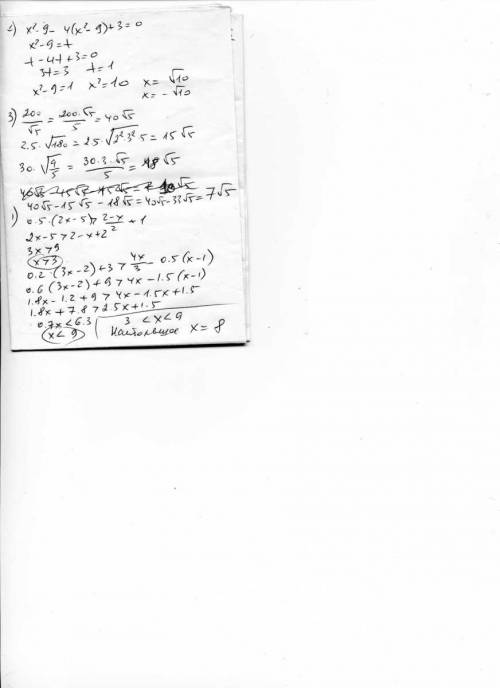 2) x²-9-4(x²-9)+3=0
x²-9=t
t-4t+3=0
3t=3 t=1
x²-9=1 x²=10 x=√10
x=-√10
3) 200/√5 = 200·√5/5 = 40√5
2.5·√180 = 2.5·√2²3²5 = 15√5
30·√9/5 = 30·3·√5/5 = 18√5
40√5-15√5-18√5=40√5-33√5=7√5
1) 0.5·(2x-5)>2-x/2+1
2x-5>2-x+2
3x>9
x>3
0.2·(3x-2)+3>4x/3-0.5(x-1)
0.6(3x-2)+9>4x-1.5(x-1)
1.8x-1.2+9>4x-1.5x+1.5
1.8x+7.8>2.5x+1.5
0.7x<6.3 3<x<9
x<9 Наибольшое x=8